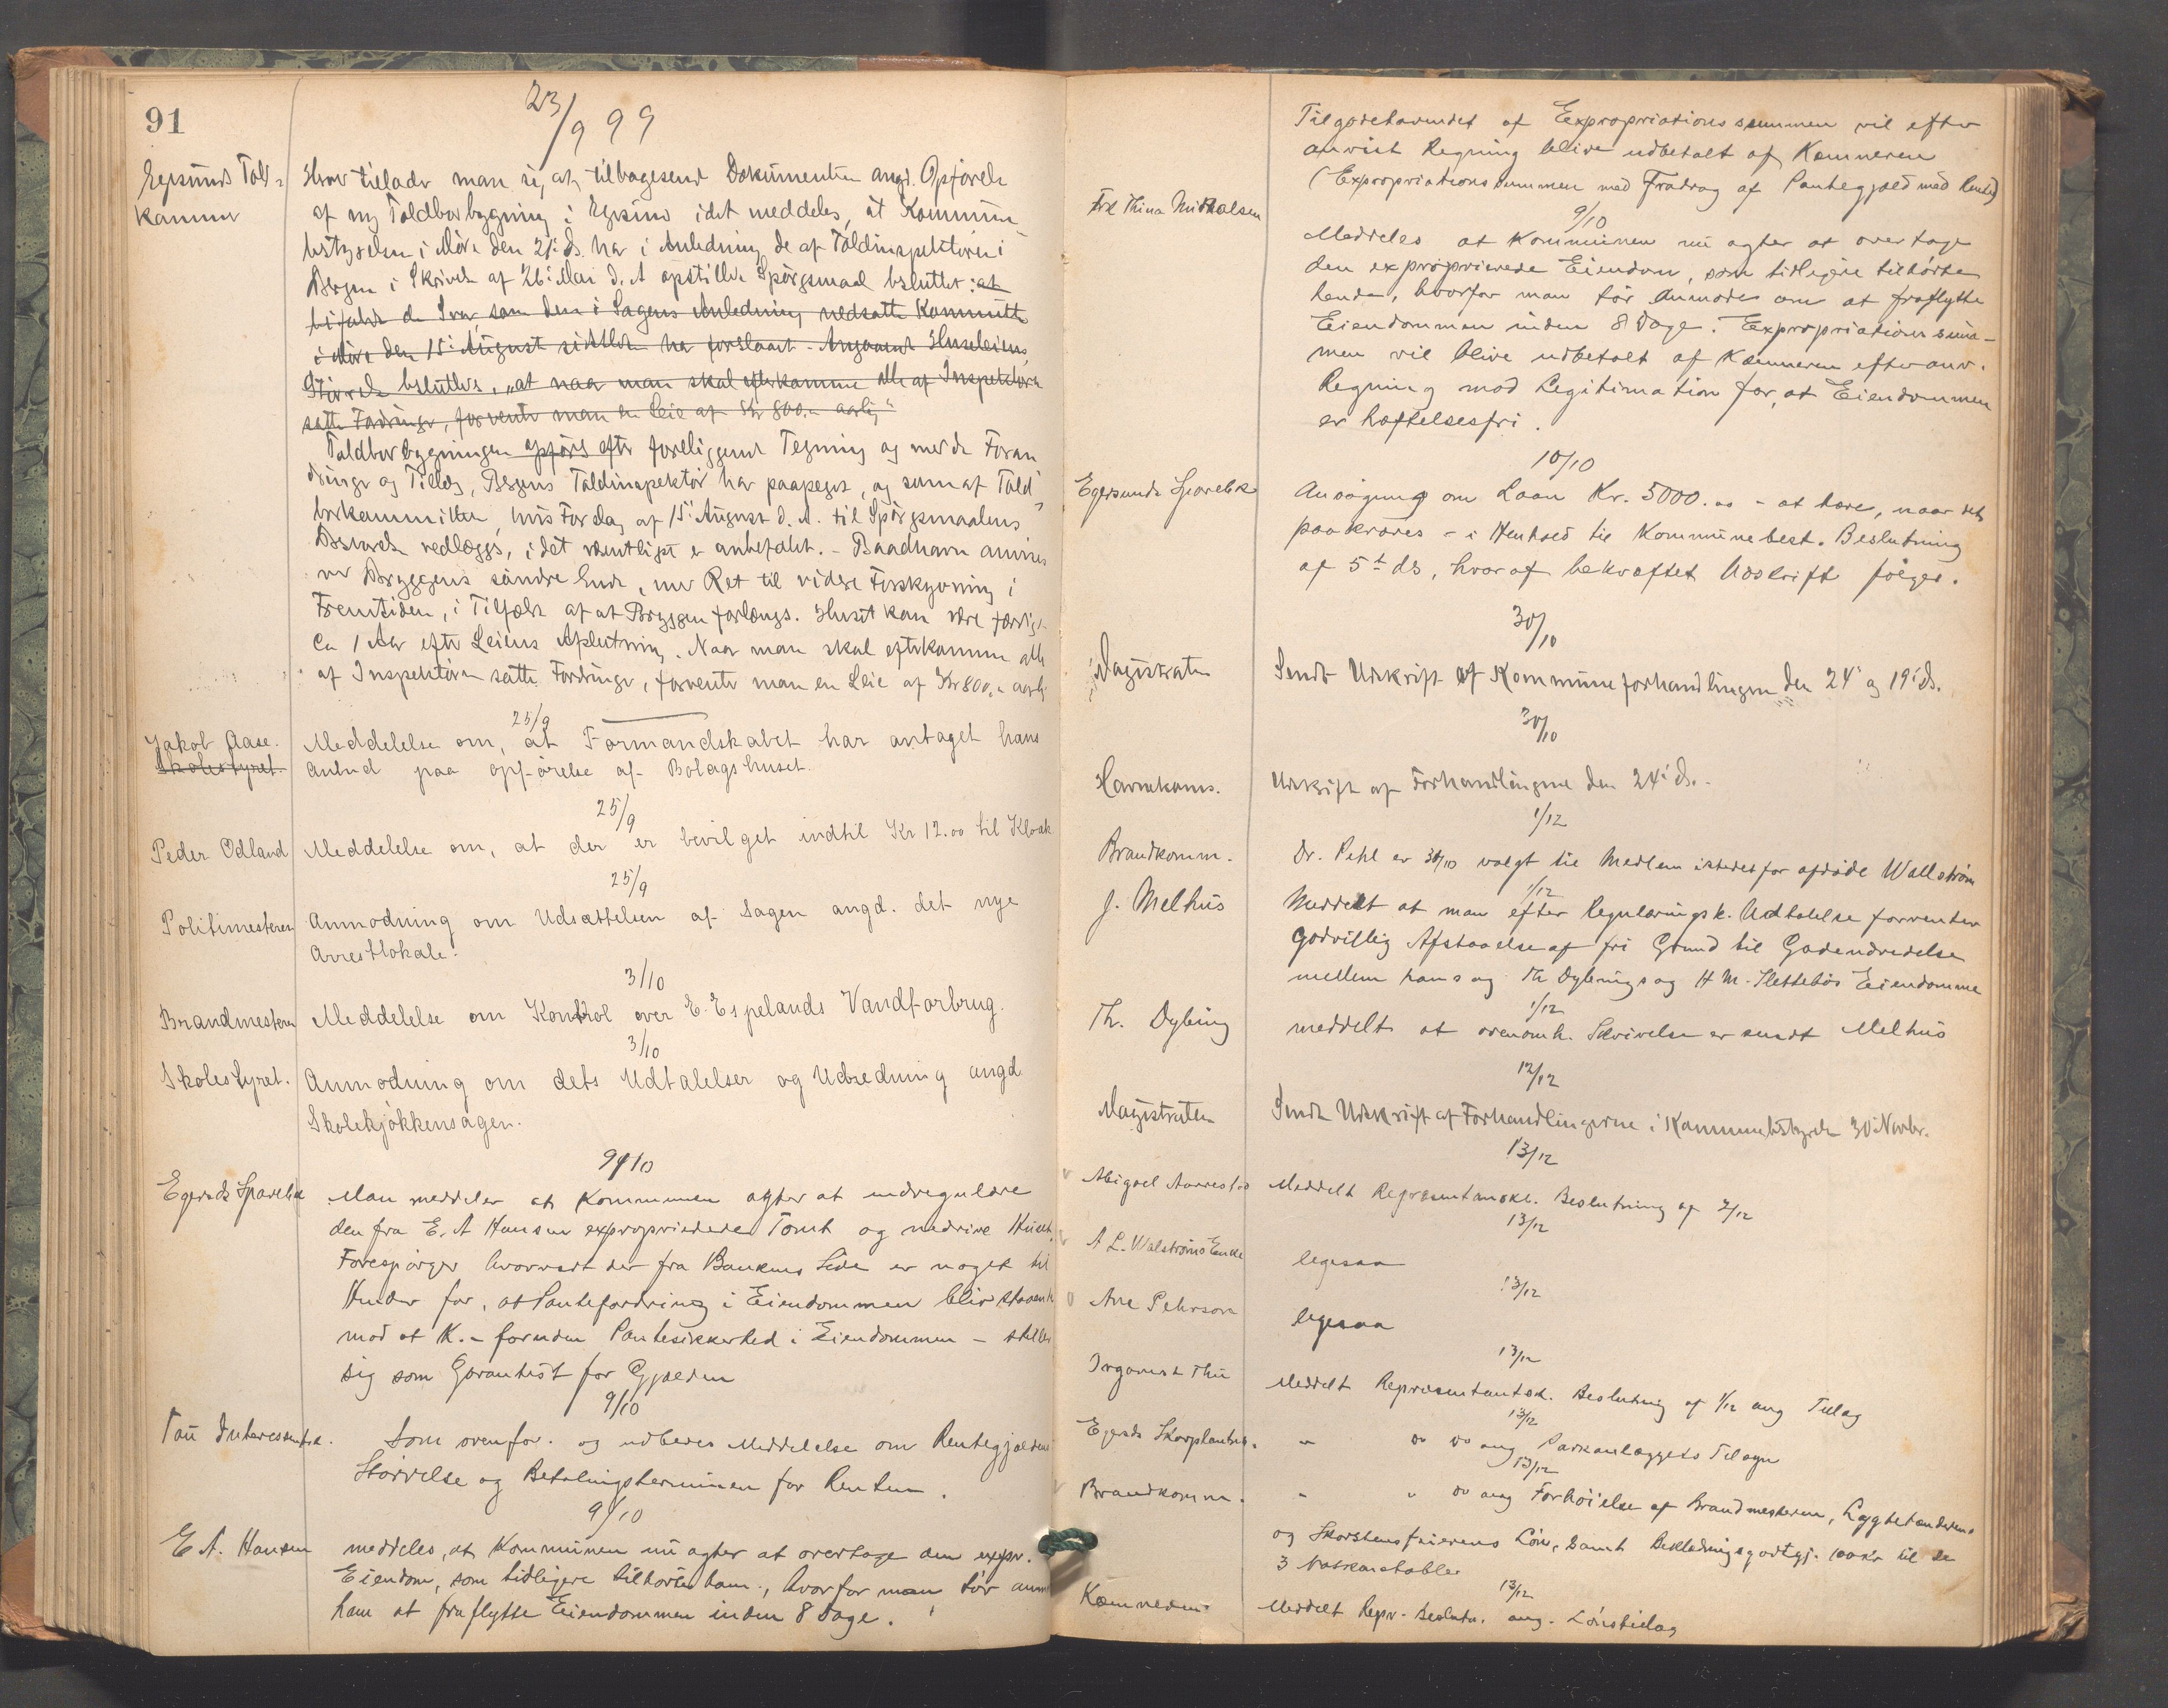 91
23/9 99
Egersunds Told-
kammer
Herved tillader man sig at tilbagesende Dokumenterne angd. Opførelse
af ny Toldbodbygning i Egersund idet meddeles, at Kommune-
bestyrelsen i Møde den 21' ds. har i Anledning de af Toldinspektøren i
Bergen i Skrivelse af 26' Mai d. A opstillede Spørgsmaal besluttet: at
bifalde de Svar som den i Sagens Anledning nedsatte Kommitte
i Møde den 15' August sidstleden har foreslaaet. Angaaende Husleiens
Størrelse besluttes, "at naar man skal efterkomme alle af Inspektøren
satte Fordringer, forventer man en Leie af Kr 800.- aarlig"
Toldbodbygningen opføres efter foreliggende Tegning og med de Foran
dringer og Tillæg, Bergens Toldinspektør har paapeget, og som af Told-
bodkommitteen, hvis Forslag af 15' August d. A. til Spørgsmaalenes
Besvarelse vedlægges, i det væsentligste er anbefalet. - Baadhavn anvises
ved Bryggens søndre Ende, med Ret til videre Forskyvning i
Fremtiden, i Tilfælde af at Bryggen forlænges. Huset kan være færdigt
Ca 1 Aar efter Leiens Afslutning. Naar man skal efterkomme alle
af Inspektøren satte Fordringer, forventer man en Leie af Kr 800,- aarlig
25/9
Jakob Aase.
Skolestyret.
Meddelelse om, at Formandskabet har antaget hans
Anbud paa opførelse af Bolagshuset.
25/9
Peder Odland
Meddelelse om, at der er bevilget indtil Kr 12.00 til Kloak
25/9
Politimesteren
Anmodning om Udsættelsen af Sagen angd. det nye
Arrestlokale.
3/10
Brandmesteren
Meddelelse om Kontrol over E. Espelands Vandforbrug.
3/10
Skolestyret.
Anmodning om dets Udtalelser og Udredning angd
Skolekjøkkensagen.
9/10
Egersds Sparebk
Man meddeler at Kommunen agter at indregulere
den fra E. A Hansen exproprierede Tomt og nedrive Huset.
Forespørger hvorvidt der fra Bankens Side er noget til
Hinder for, at Pantefordring i Eiendommen blir staaende
mod at K. - foruden Pantesikkerhed i Eiendommen - stiller
sig som Garantist for Gjælden
9/10
Tou Interessentsk.
Som ovenfor. og udbedes Meddelelse om Restegjældens
Størrelse og Betalingsterminen for Renten.
9/10
E A. Hansen
meddeles, at Kommunen nu agter at overtage den expr.
Eiendom, som tidligere tilhørte ham., hvorfor man tør anm
ham at fraflytte Eiendommen inden 8 Dage.
Tilgodehavendet af Expropriationssummen vil efter
anvist Regning blive udbetalt af Kæmneren
(Expropriationssummen med Fradrag af Pantegjæld med Renter)
9/10
Frk Thina Michalsen
Meddeles at Kommunen nu agter at overtage
den exproprierede Eiendom, som tidligere tilhørte
hende, hvorfor man tør Anmode om at fraflytte
Eiendommen inden 8 Dage. Expropriationssum-
men vil blive udbetalt af Kæmneren efter anv.
Regning mod Legitimation for, at Eiendommen
er hæftelsesfri.
10/10
Egersunds Sparebk
Ansøgning om Laan Kr. 5000.00 - at hæve, naar det
paakræves - i Henhold til Kommunebest. Beslutning
af 5te ds, hvoraf bekræftet Udskrift følger.
30/10
Magistraten
Sendt Udskrift af Kommuneforhandlingen den 24' og 19' ds.
30/10
Havnekoms.
Udskrift af Forhandlingerne den 24' ds. -
1/12
Brandkomm.
Dr. Pihl er 30/10 valgt til Medlem istedetfor afdøde Wallstrøm
1/12
J. Melhus
Meddelt at man efter Reguleringsk. Udtalelse forventer
godvillig Afstaaelse af fri Grund til Gadeudvidelse
mellem hans og Th Dybings og H M. Slettebøs Eiendomme
1/12
Th. Dybing
meddelt at ovenomh. Skrivelse er sendt Melhus
12/12
Magistraten
Sendt Udskrift af Forhandlingerne i Kommunebestyrelsen 30' Novbr.
13/12
Abigael Aarrestad
Meddelt Repræsentantsk. Beslutning af 7/12
13/12
A L. Walstrøms Enke
legesaa
13/12
Ane Pehrson
legesaa
13/12
Organist Thu
Meddelt Repræsentantsk. Beslutning af 1/12 ang Tillæg
13/12
Egersds Skovplantn.
" do do ang Parkanlæggets Tilsyn
13/12
Brandkomm.
" " do ang Forhøielse af Brandmesteren, Lygtetænderens
og Skorstensfeierens Løn, samt Beklædningsgodtgj. 100 Kr til de
3 Natkonstabler
13/12
Kæmneren
Meddelt Repr. Beslutn. ang. Lønstillæg